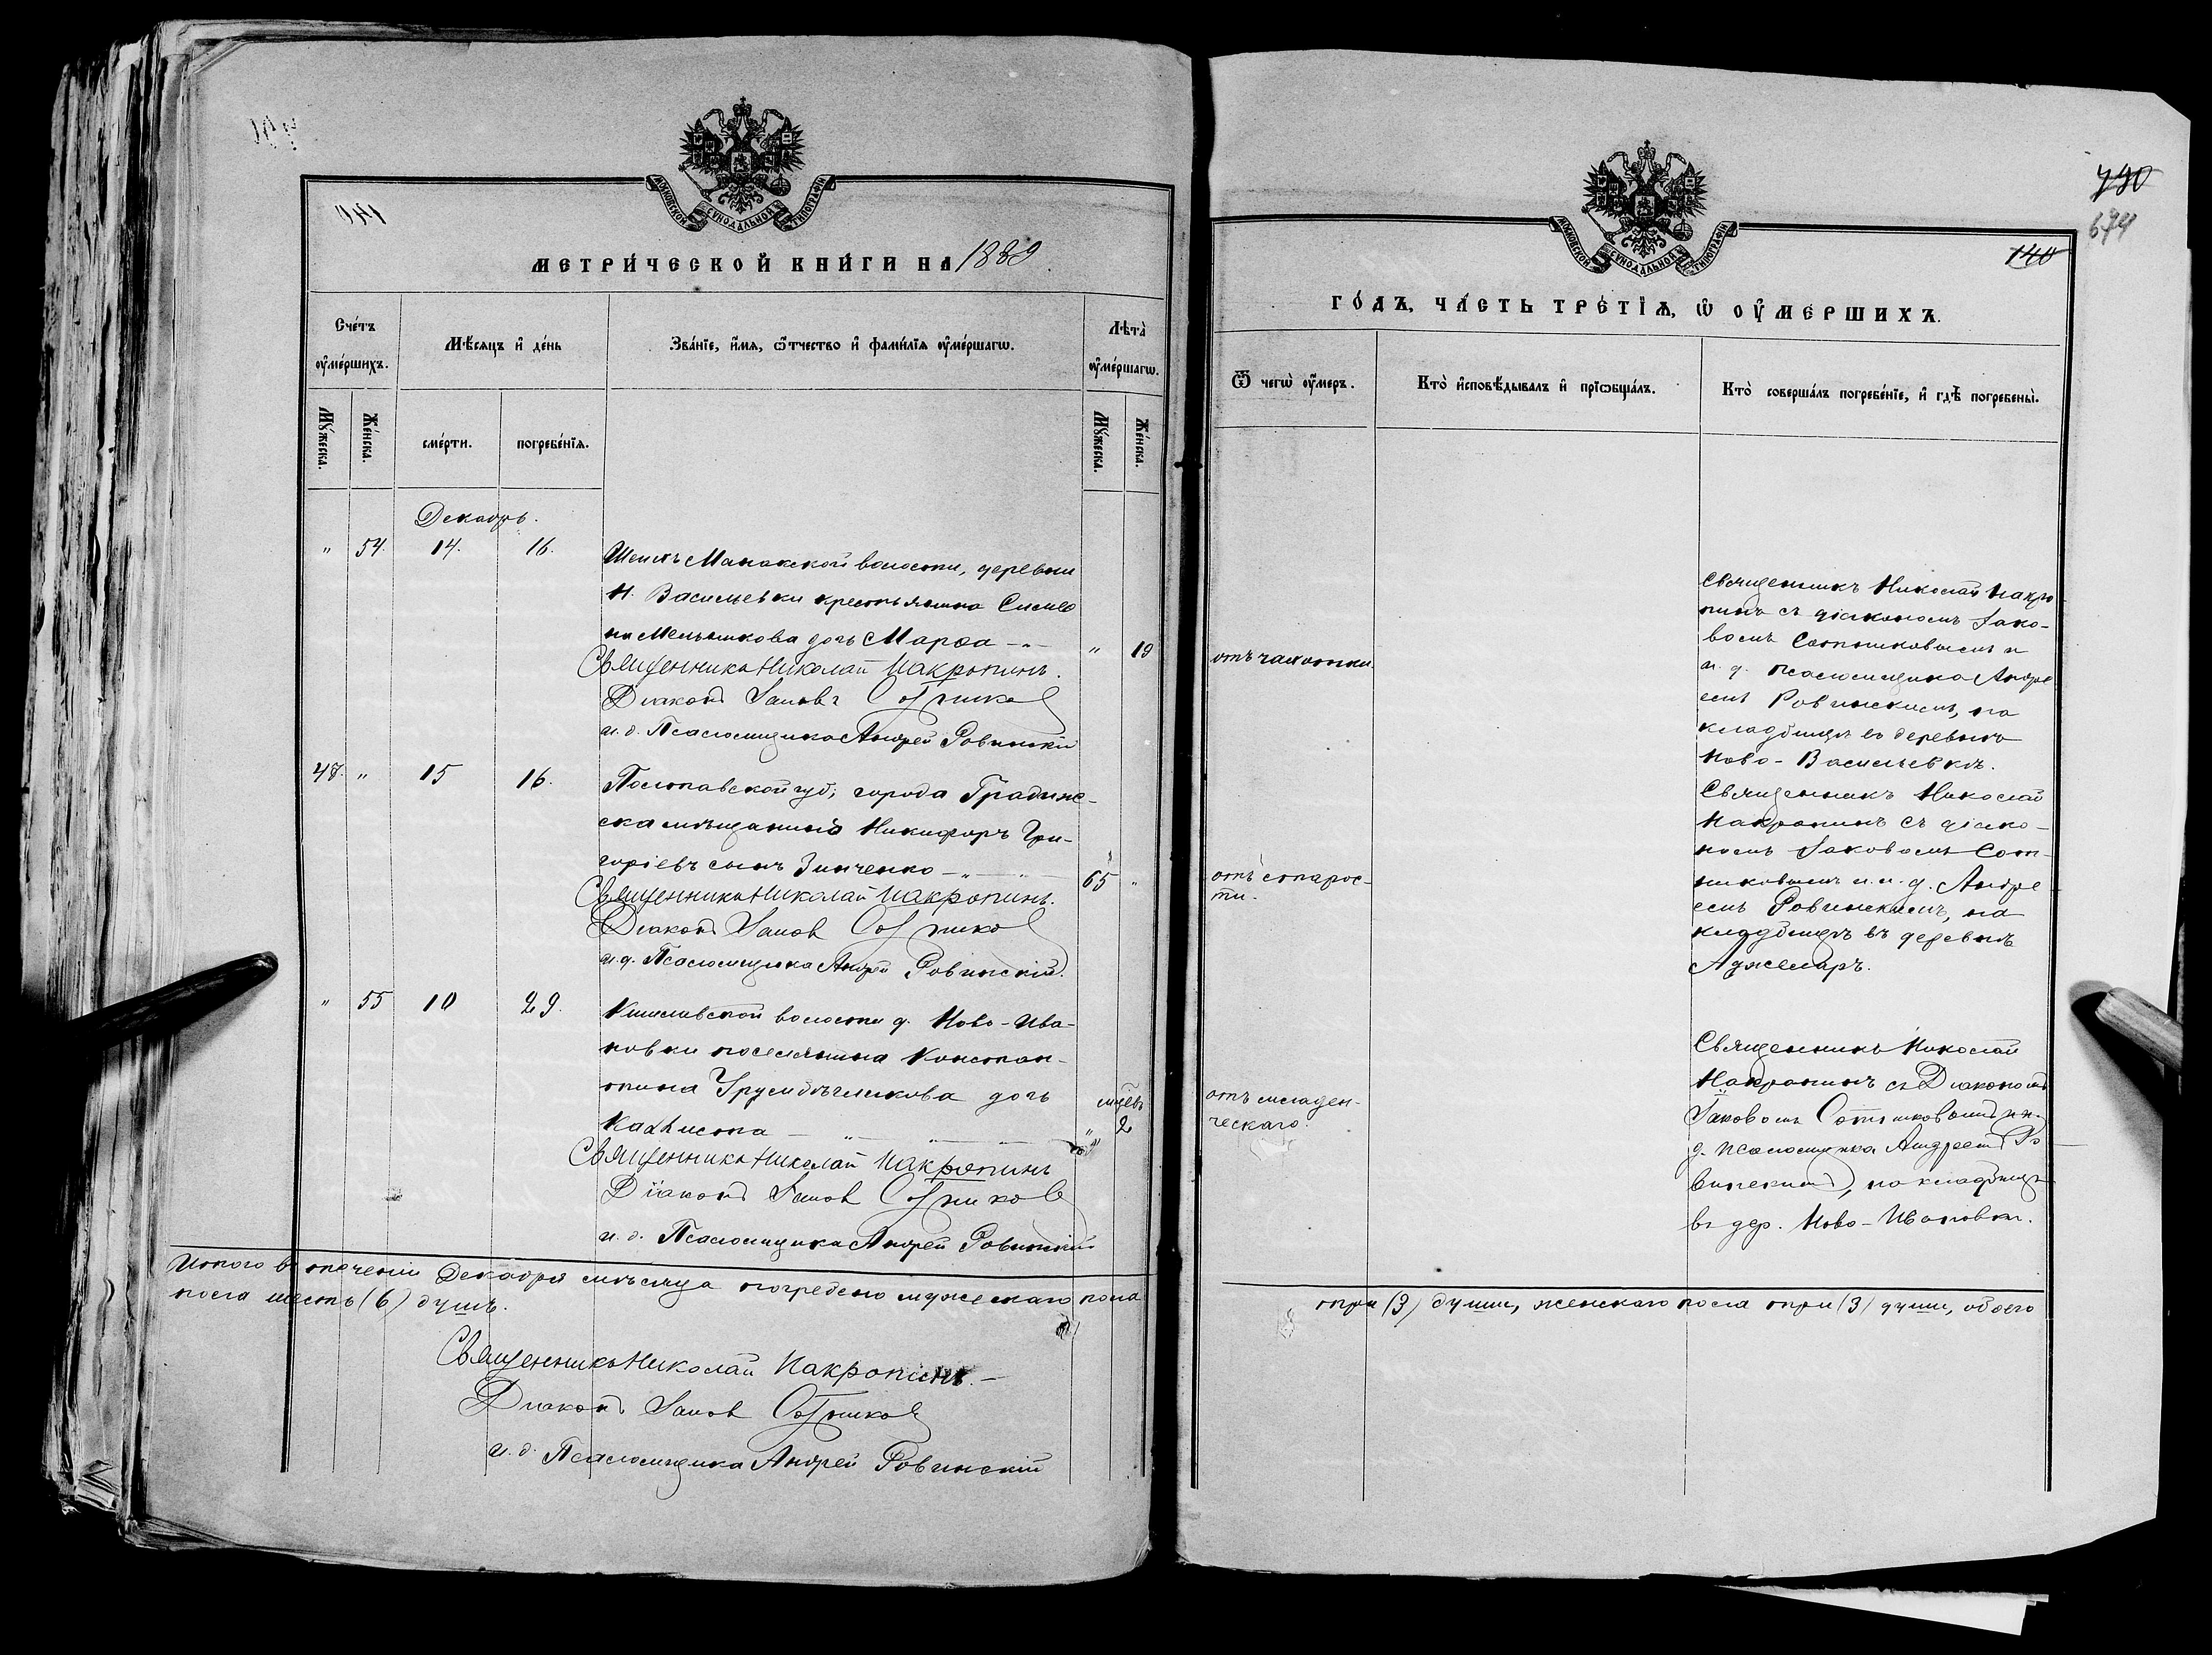 МОСКОВСКОЙ СѴНОДАЛЬНОЙ ТИПОГРАФІИ
МЕТРИ́ЧЕСКОЙ КНИ́ГИ НА 1889
Сче́тъ ᲂу҆ме́ршихъ.
Мѣ́сяцъ и҆ де́нь
Зва́нїе, и҆́мя, ѻ҆́тчество и҆ фами́лїя ᲂу҆ме́ршагѡ.
Лѣ́та ᲂу҆ме́ршагѡ.
Мꙋ́жеска.
Же́нска.
сме́рти.
погребе́нїя.
Мꙋ́жеска.
Же́нска.
Декабрь.
" 54. 14. 16.
Шейхъ Манакской волости, деревни
Н. Васильевки крестьянина Симео
на Мельникова дочь Марѳа - " -
" 19
Священникъ Николай Накропинъ.
Діаконъ Іаковъ Сотников
и. д. Псаломщика Андрей Ровинскій
48. " 15 16.
Полтавской губ; города Градиж-
ска мѣщанинъ Никифоръ Гри-
горіевъ сынъ Зинченко - " -
65 "
Священникъ Николай Накропинъ.
Діаконъ Іаков Сотников
и. д. Псаломщика Андрей Ровинскій.
" 55 10 29.
волости д. Ново-Ива-
новки поселянина Констан-
тина дочь
Калиста - " -
" 2
Священникъ Николай Накропинъ
Діаконъ Іаков Сотников
и. д. Псаломщика Андрей Ровинскій
Итого въ теченіи Декабря мѣсяца погребено мужескаго пола
пола шесть (6) душъ.
Священникъ Николай Накропинъ. -
Діаконъ Іаков Сотников
и. д. Псаломщика Андрей Ровинскій
790
674
140
МОСКОВСКОЙ СѴНОДАЛЬНОЙ ТИПОГРАФІИ
ГО́ДЪ, ЧА́СТЬ ТРЕ́ТЇѦ, Ѡ҆ ОУ҆МЕ́РШИХЪ.
Ѿ чегѡ̀ ᲂу҆́меръ.
Кто̀ и҆сповѣ́дывалъ и҆ прїѡбща́лъ.
Кто̀ соверша́лъ погребе́нїе, и҆ гдѣ̀ погребены̀.
отъ чахотки.
Священникъ Николай Накро
пинъ съ діакономъ Іако-
вомъ Сотниковымъ и
и. д. псаломщика Андре
емъ Ровинскимъ, на
кладбищѣ въ деревнѣ
Ново-Васильевкѣ.
отъ старос-
ти.
Священникъ Николай
Накропинъ съ діако-
номъ Іаковомъ Сот-
никовымъ и и. д. Андре
емъ Ровинскимъ, на
кладбищѣ въ деревнѣ
Аджеларъ.
отъ младен-
ческаго.
Священникъ Николай
Накропинъ съ Діакономъ
Іаковомъ Сотниковымъ и и.
д. псаломщика Андреемъ Ро
винскимъ, на кладбищѣ
въ дер. Ново-Ивановки.
три (3) души, женскаго пола три (3) души, обоего